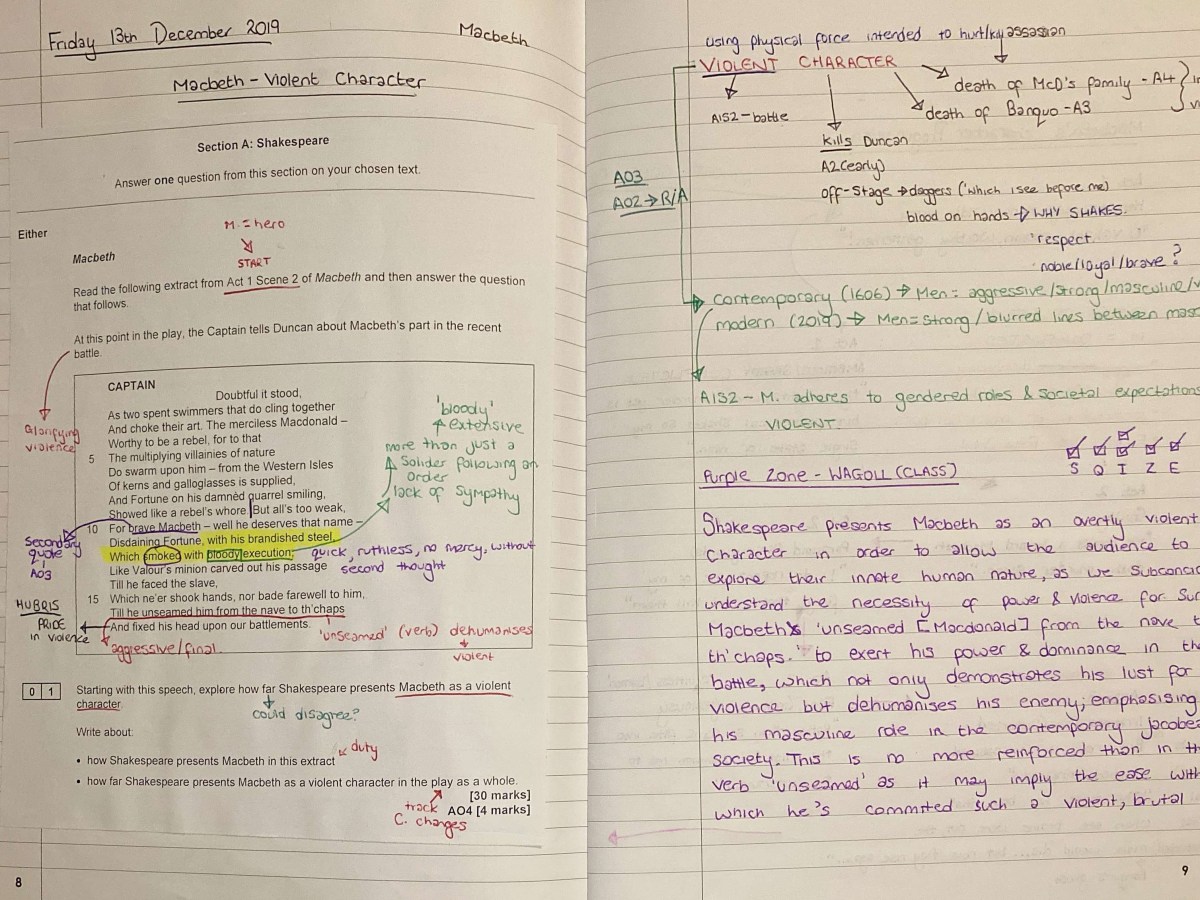 Friday 13th December 2019
Macbeth
Macbeth - Violent Character
Section A: Shakespeare
Answer one question from this section on your chosen text.
Either
M. = hero
START
Macbeth
Read the following extract from Act 1 Scene 2 of Macbeth and then answer the question
that follows.
At this point in the play, the Captain tells Duncan about Macbeth's part in the recent
battle.
Glorifying
violence
CAPTAIN
Doubtful it stood,
As two spent swimmers that do cling together
And choke their art. The merciless Macdonald –
Worthy to be a rebel, for to that
5 The multiplying villainies of nature
Do swarm upon him – from the Western Isles
Of kerns and galloglasses is supplied,
And Fortune on his damnèd quarrel smiling,
Showed like a rebel's whore. But all's too weak,
10 For brave Macbeth – well he deserves that name –
Disdaining Fortune, with his brandished steel,
Which smoked with bloody execution,
Like Valour's minion carved out his passage
Till he faced the slave,
15 Which ne'er shook hands, nor bade farewell to him,
Till he unseamed him from the nave to th'chaps
And fixed his head upon our battlements.
'bloody'
extensive
more than just a
Solider following an
order
lack of sympathy
Secondary
quote
AO3
quick, ruthless, no mercy, without
second thought
HUBRIS
PRIDE
in violence
aggressive/final.
'unseamed' (verb) dehumanises
violent
0 1
Starting with this speech, explore how far Shakespeare presents Macbeth as a violent
character.
could disagree?
Write about:
duty
• how Shakespeare presents Macbeth in this extract
• how far Shakespeare presents Macbeth as a violent character in the play as a whole.
[30 marks]
AO4 [4 marks]
track
C. changes
8
using physical force intended to hurt/kill assassian
VIOLENT CHARACTER
death of McD's family - A4
death of Banquo - A3
A1S2 - battle
kills Duncan
A2(early)
off-stage → daggers ('which I see before me)
blood on hands → WHY SHAKES.
'respect
noble/loyal/brave?
AO3
AO2 → R/A
Contemporary (1606) → Men = aggressive/strong/masculine/
modern (2019) → Men = Strong / blurred lines between
A1S2 - M. adheres to gendered roles & societal expectations
VIOLENT.
Purple Zone - WAGOLL (CLASS)
S Q I Z E
Shakespeare presents Macbeth as an overtly violent
character in order to allow the audience to
explore their innate human nature, as we
understand the necessity of power & violence for
Macbeth's 'unseamed [Macdonald] from the nave
th'chaps.' to exert his power & dominance in
battle, which not only demonstrates his lust for
violence but dehumanises his enemy; emphosising
his masculine role in the contemporary
society. This is no more reinforced than in
verb 'unseamed' as it may imply the ease
which he's commited such a violent, brutal
9